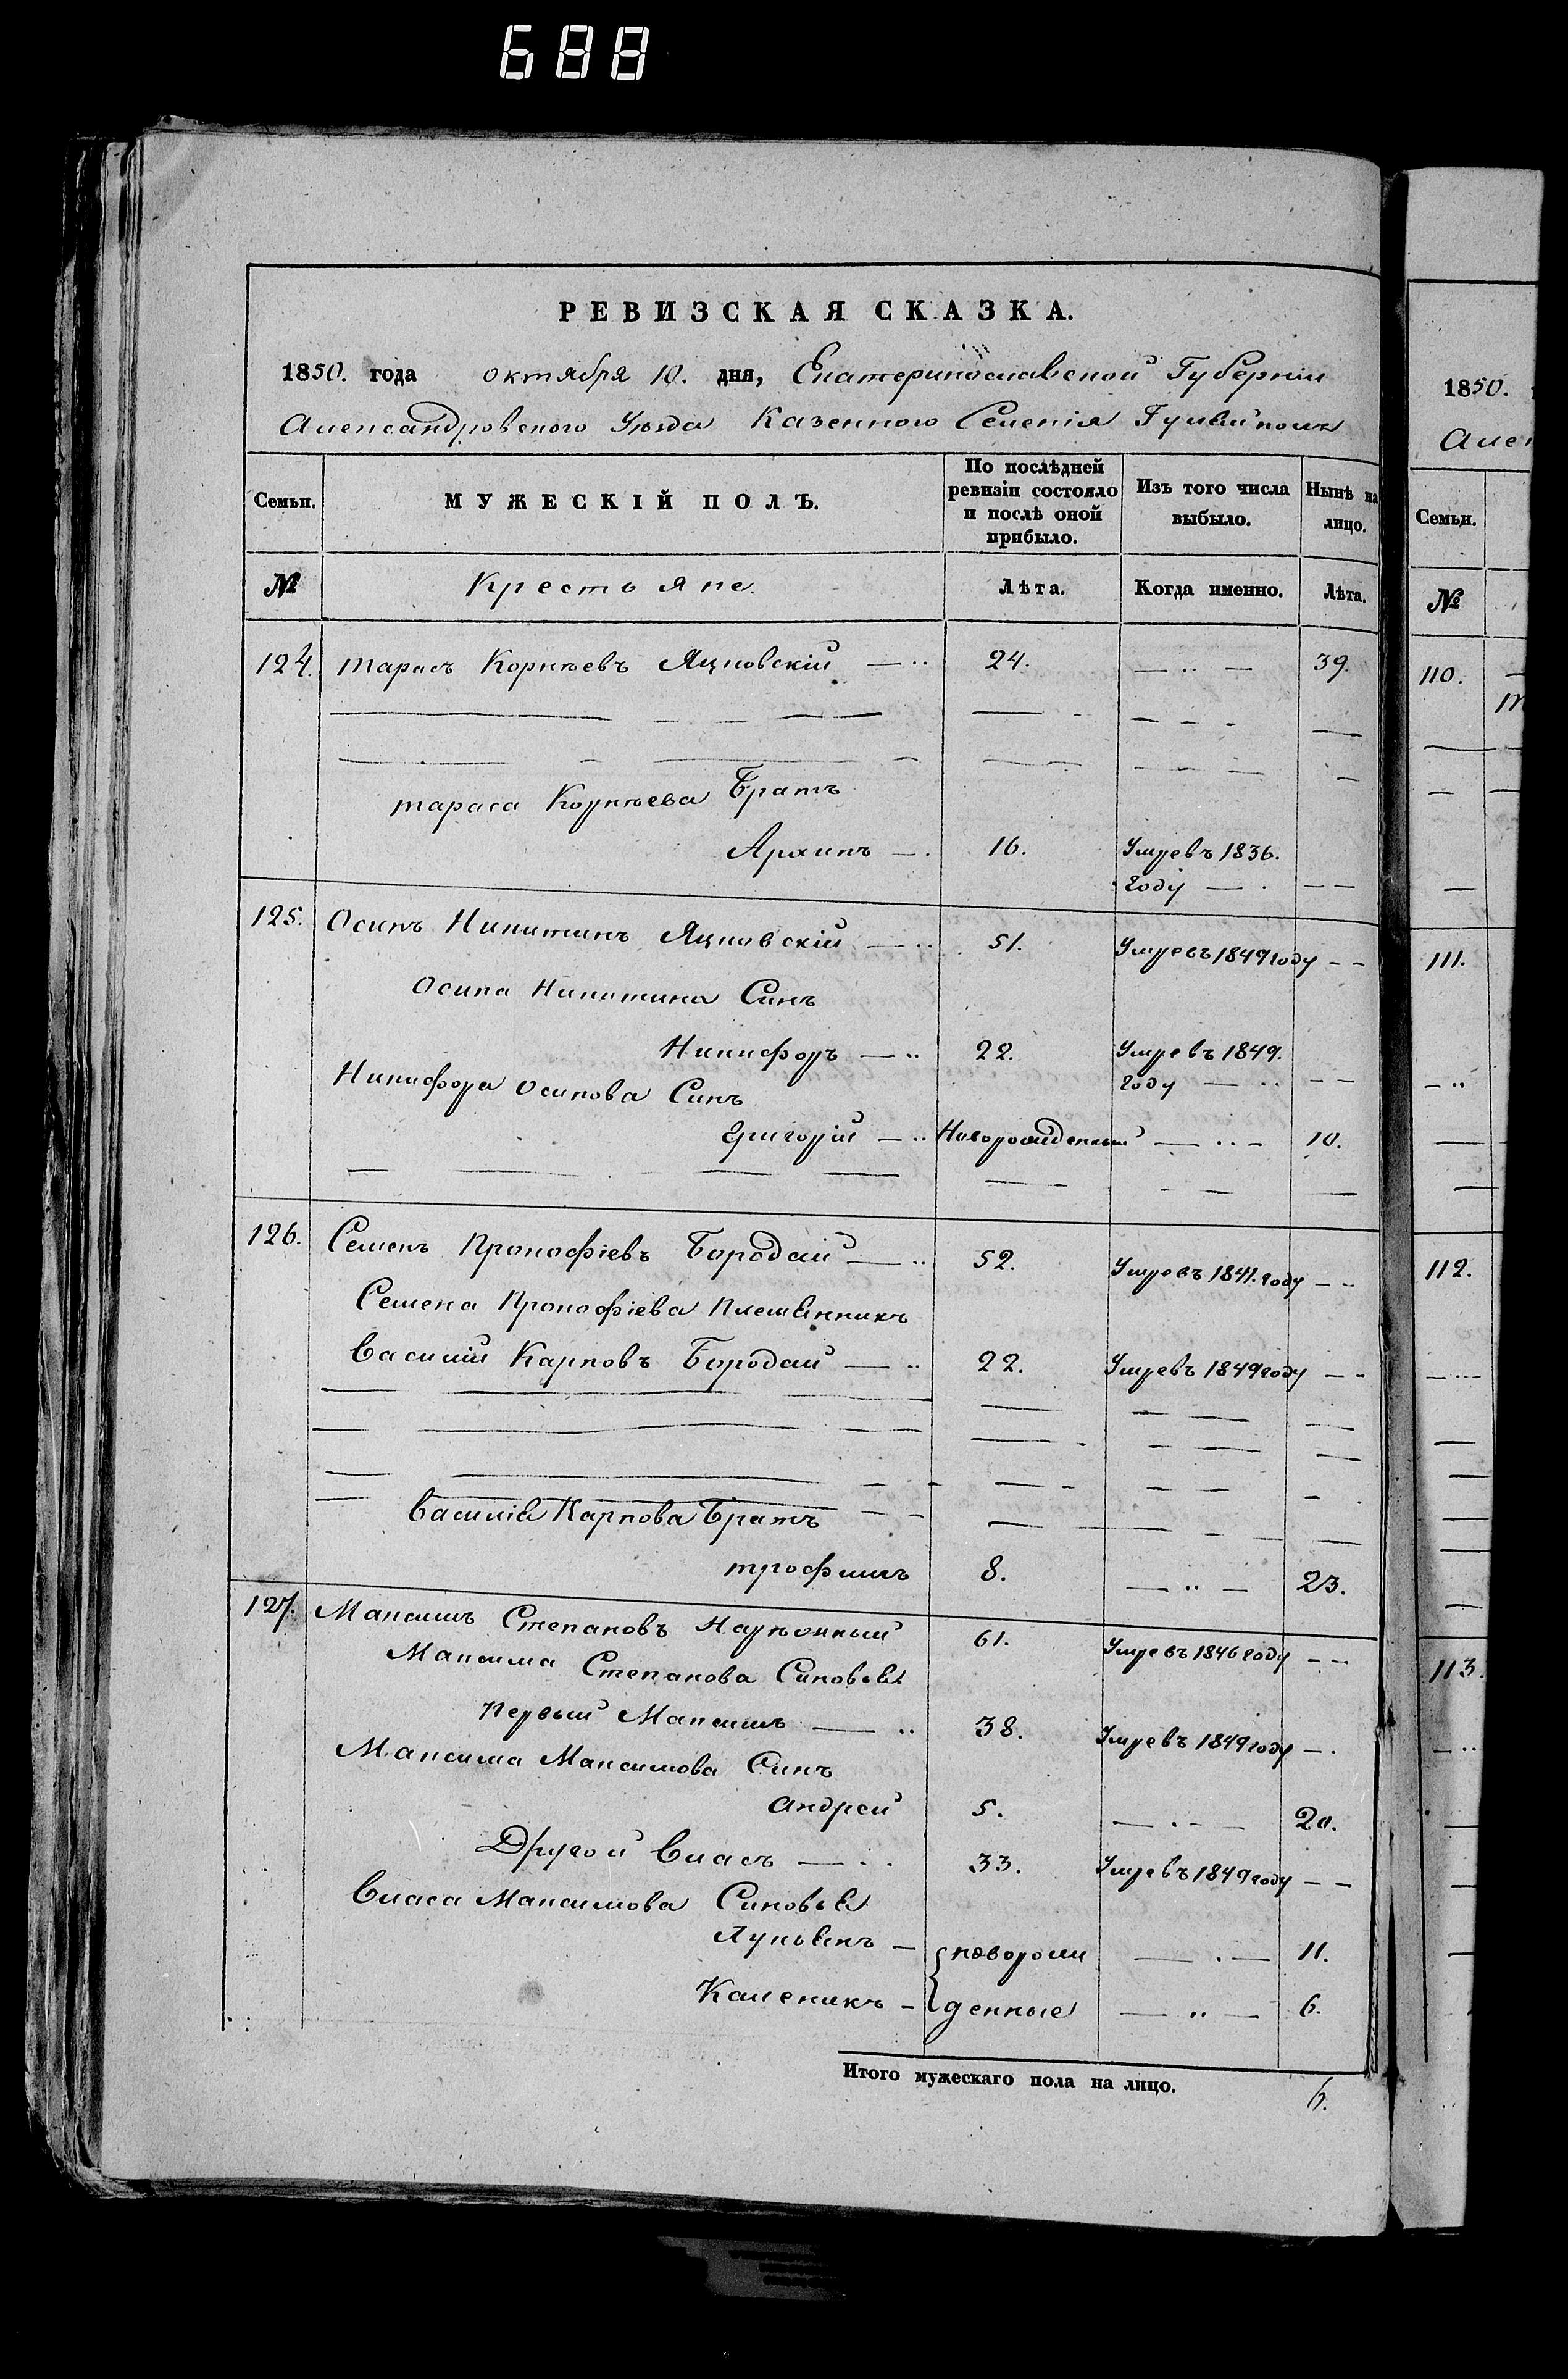 688
РЕВИЗСКАЯ СКАЗКА.
1850. года октября 10. дня, Екатеринославской Губернии
Александровского Уезда Казенного Селенія Гуляйполя
Семьи. МУЖЕСКІЙ ПОЛЪ. По послѣдней ревизіи состояло и послѣ оной прибыло. Изъ того числа выбыло. Нынѣ на лицо.
№ Крестьяне. Лѣта. Когда именно. Лѣта.
124. Тарасъ Корнѣевъ Яцновскій 24. 39.
Тараса Корнѣева Братъ
Архипъ 16. Умревъ 1836.
году
125. Осипъ Никитинъ Яцновскій 51. Умревъ 1849 году
Осипа Никитина Синъ
Никифоръ 22. Умревъ 1849.
году
Никифора Осипова Синъ
Григорій Новорожденный 10.
126. Семенъ Прокофіевъ Бородай 52. Умревъ 1841. году
Семена Прокофіева Племѣнникъ
Василій Карповъ Бородай 22. Умревъ 1849 году
Василія Карпова Братъ
Трофимъ 8. 23.
127. Максимъ Степановъ 61. Умревъ 1846 году
Максима Степанова Синовья
Первый Максимъ 38. Умревъ 1849 году
Максима Максимова Синъ
Андрей 5. 20.
Другой Власъ 33. Умревъ 1849 году
Власа Максимова Синовья
Лукьянъ новорож 11.
Каленикъ денные 6.
Итого мужескаго пола на лицо. 6.
1850.
Алек
Семьи.
№
110.
111.
112.
113.